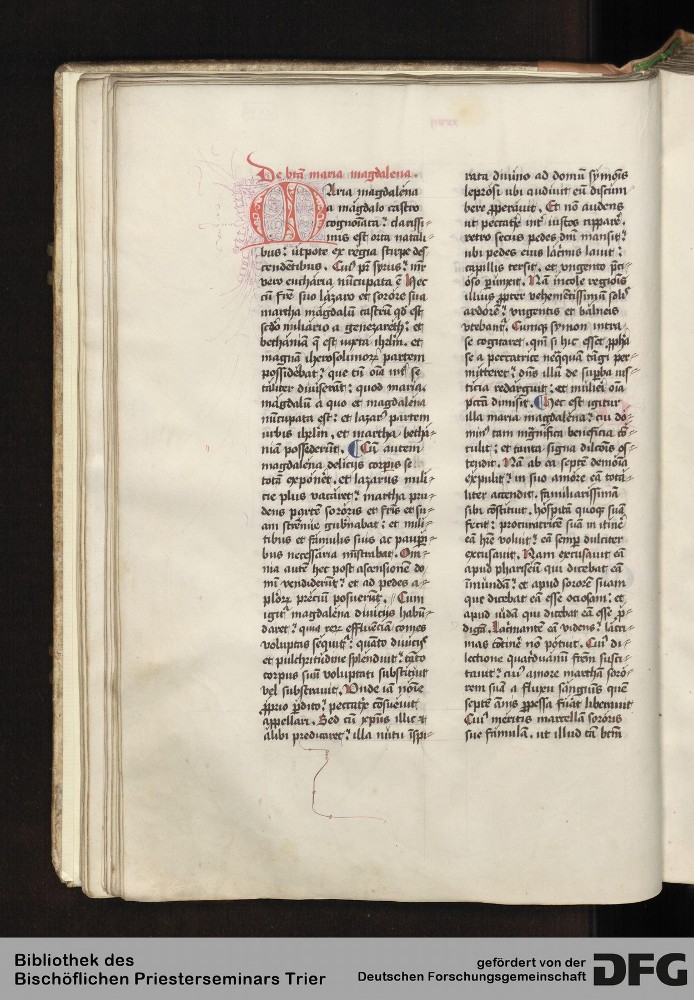 De btā maria magdalena.
Aria magdalena
a magdalo castro
cognoīata? clarissi-
mis est orta natali-
bus? utpote ex regia stirpe des
cendentibus. Cuiꝰ pr̄ syrus? mr̄
vero eucharia nūcupata ē Hec
cū fr̄e suo lazaro et sorore sua
martha magdalū castrū qd est
scdo miliario a genezareth? et
bethaniā q̄ est iuxta ihrlm̄. et
magnā iherosolimoꝝ partem
possidebat? que tn̄ oīa int̄ se
taliter diuiserūt? quod maria.
magdalū a quo et magdalena
nūcupata est? et lazarꝰ partem
urbis ihrlm̄. et martha betha-
niā possederūt. Cū autem
magdalena deliciis corpis se
totā exponēt. et lazarus mili-
cie plus vacaret? martha pru-
dens partē sororis et fr̄is et su-
am strēnue gub̄nabat? et mili-
tibus et famulis suis ac paupi-
bus necessaria mīstrabat. Om-
nia autē hec post ascensionē do-
mī vendiderūt? et ad pedes a-
ploꝝ preciū posuerūt. Cum
igit̄ magdalena diuiciis habū-
daret? quia rerū affluēciā comes
voluptas sequit̄? quāto diuiciis
et pulchritudine splenduit? tāto
corpus suū voluptati substituit
vel substrauit. Unde iā noīe
ꝓprio pdito? peccatrix cōsueuit
appellari. Sed cū xpus illic et
alibi predicaret? illa nutu īspi-
rata diuino ad domū symōis
leprosi ubi audiuit eū discum
bere ꝓperauit. Et nō audens
ut peccatrix int̄ iustos appare.
retro secus pedes dn̄i mansit?
ubi pedes eius lacrimis lauit?
capillis tersit. et vngento p̄ci-
oso punxit. Nā incole regiois
illius ꝓpter vehemētissimū solis
ardorē? vngentis et balneis
vtebant̄. Cumqꝫ symon intra
se cogitaret. qm̄ si hic esset ꝓpha
se a peccatrice neqquā tāgi per-
mitteret? dn̄s illū de supbia ius-
ticia redarguit? et mulieri oīa
pctā dimisit. Hec est igitur
illa maria magdalena? cui do-
minꝰ tam mgnifica beneficia cō-
tulit? et tanta signa dilcōis os-
tendit. Nā ab ea septē demoīa
expulit? in suo amore eā tota-
liter accendit. familiarissimā
sibi cōstituit. hospitā quoqꝫ suā
fecit? procuratricē suā in itine
eā hr̄e voluit? eā semp dulciter
excusauit. Nam excusauit eā
apud phariseū qui dicebat eā
īmūdā? et apud sororē suam
que dicebat eā esse ociosam? et
apud iudā qui dicebat eā esse ꝓ-
digā. Lacrimantē eā videns? lacri-
mas cōtinē nō potuit. Cuiꝰ di-
lectione quatriduanū frēm susci-
tauit? cuiꝰ amore marthā soro-
rem suā a fluxu sanguīs quē
septē ānis ꝓpessa fūat liberauit
Cuiꝰ meritis marcellā sororis
sue famulā. ut illud tā btm̄
Bibliothek des
Bischöflichen Priesterseminars Trier
gefördert von der
Deutschen Forschungsgemeinschaft
DFG